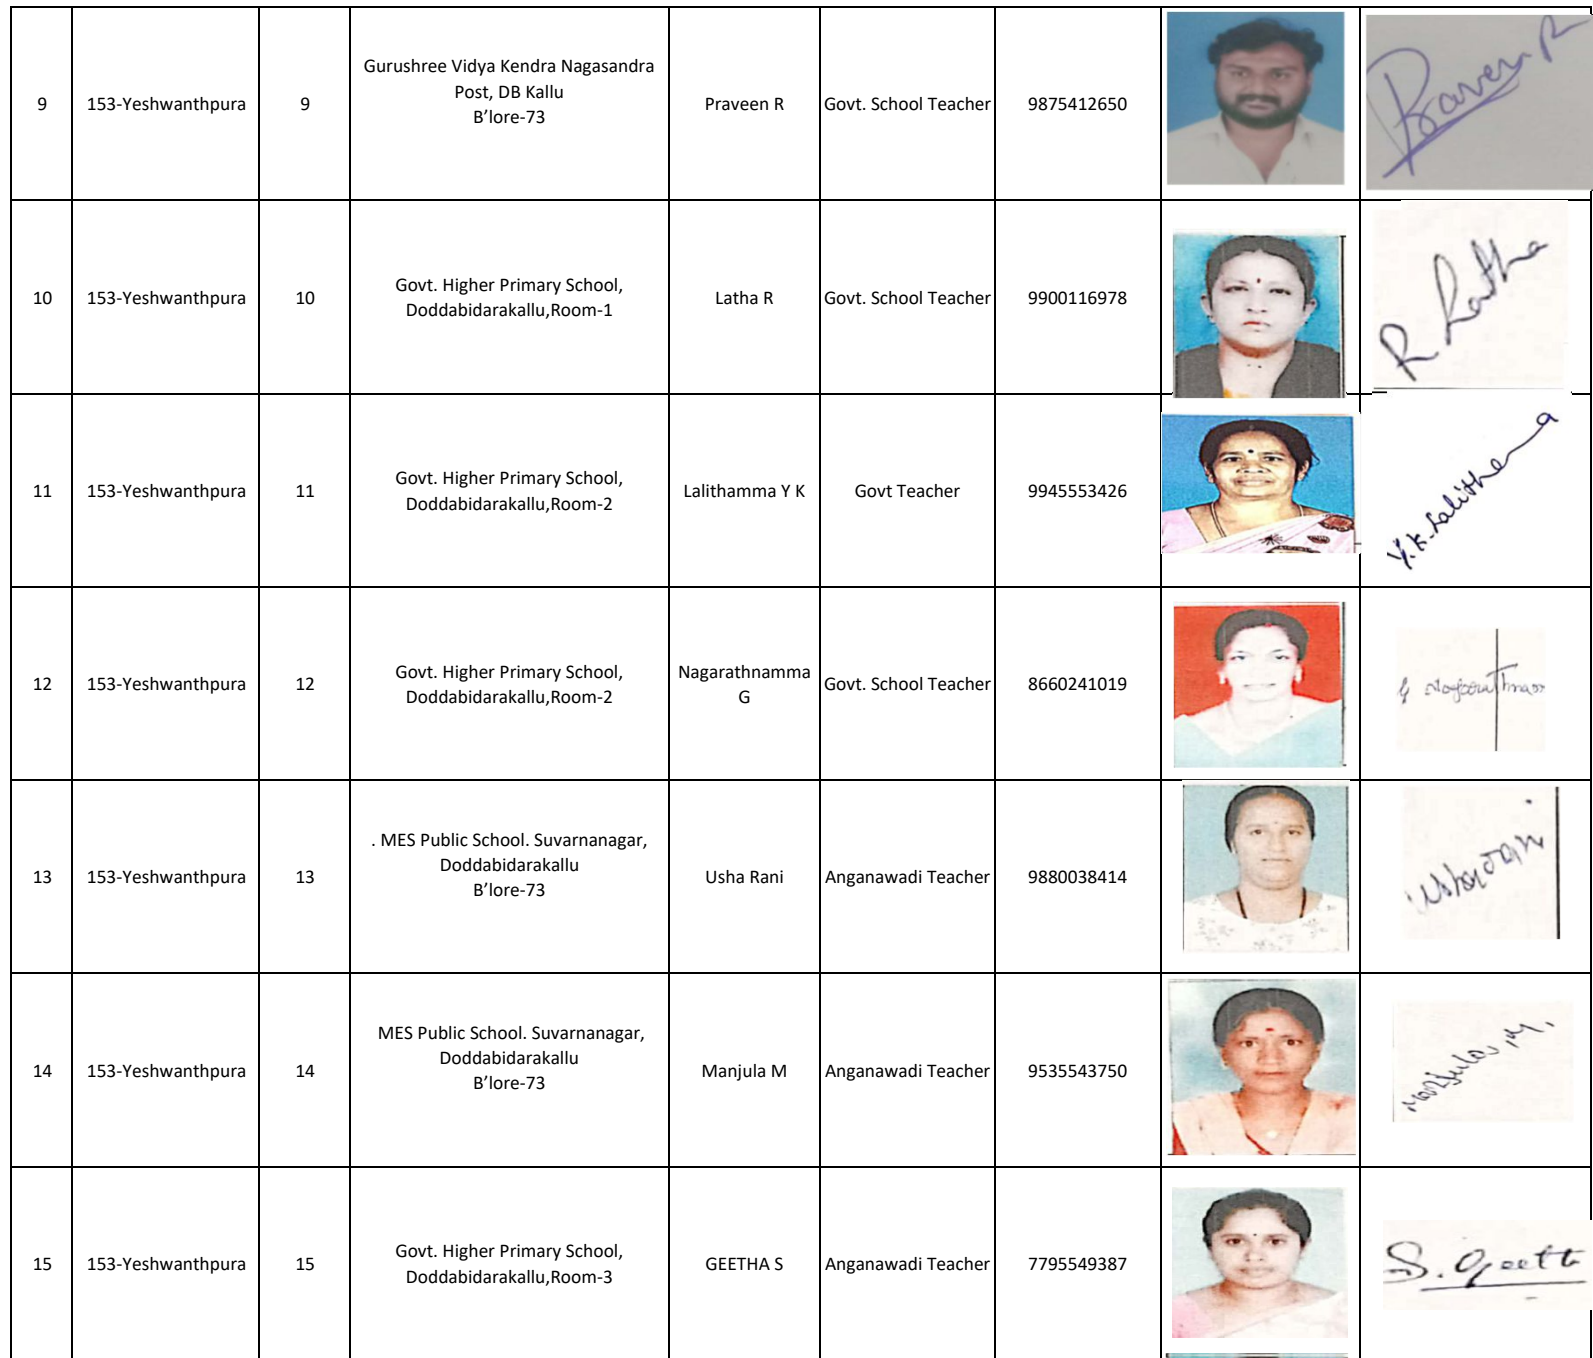 9 153-Yeshwanthpura 9 Gurushree Vidya Kendra Nagasandra
Post, DB Kallu
B'lore-73 Praveen R Govt. School Teacher 9875412650 Praveen R
10 153-Yeshwanthpura 10 Govt. Higher Primary School,
Doddabidarakallu,Room-1 Latha R Govt. School Teacher 9900116978 R Latha
11 153-Yeshwanthpura 11 Govt. Higher Primary School,
Doddabidarakallu,Room-2 Lalithamma Y K Govt Teacher 9945553426 Y.K.
12 153-Yeshwanthpura 12 Govt. Higher Primary School,
Doddabidarakallu,Room-2 Nagarathnamma
G Govt. School Teacher 8660241019 G
13 153-Yeshwanthpura 13 . MES Public School. Suvarnanagar,
Doddabidarakallu
B'lore-73 Usha Rani Anganawadi Teacher 9880038414
14 153-Yeshwanthpura 14 MES Public School. Suvarnanagar,
Doddabidarakallu
B'lore-73 Manjula M Anganawadi Teacher 9535543750 Manjula, M.
15 153-Yeshwanthpura 15 Govt. Higher Primary School,
Doddabidarakallu,Room-3 GEETHA S Anganawadi Teacher 7795549387 S. Geeth